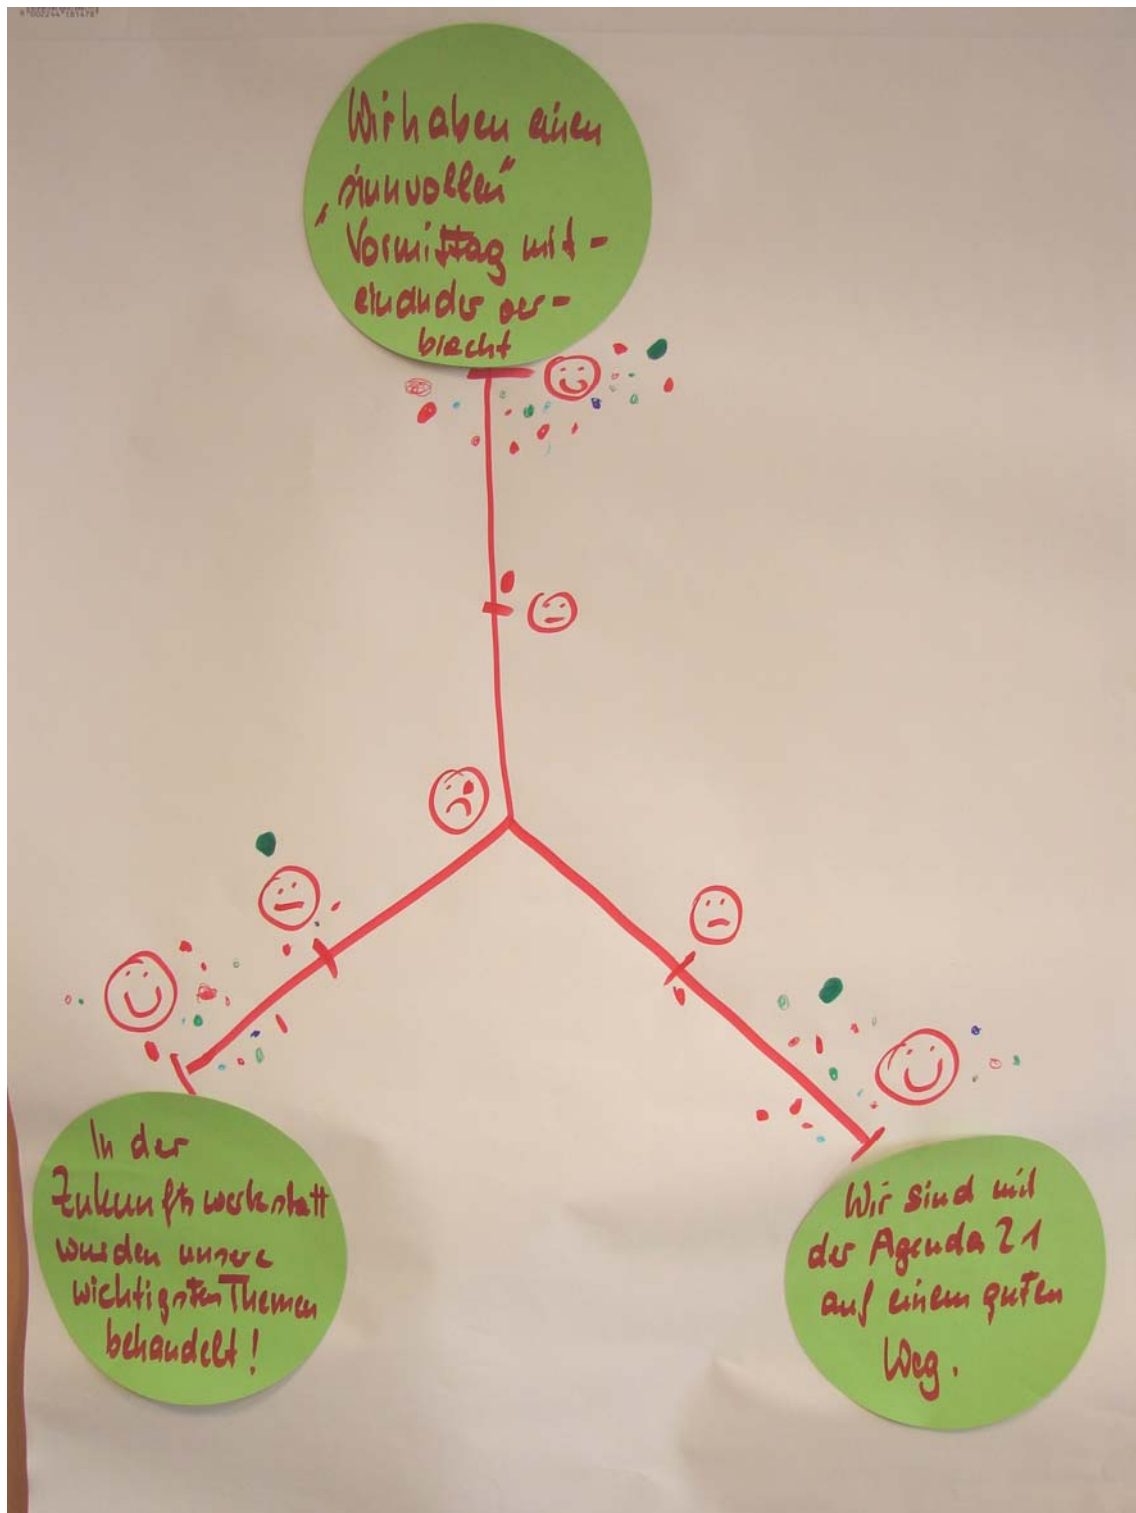 Wir haben einen
„sinnvollen"
Vormittag mit-
einander ver-
bracht
In der
Zukunftswerkstatt
wurden unsere
wichtigsten Themen
behandelt!
Wir sind mit
der Agenda 21
auf einem guten
Weg.